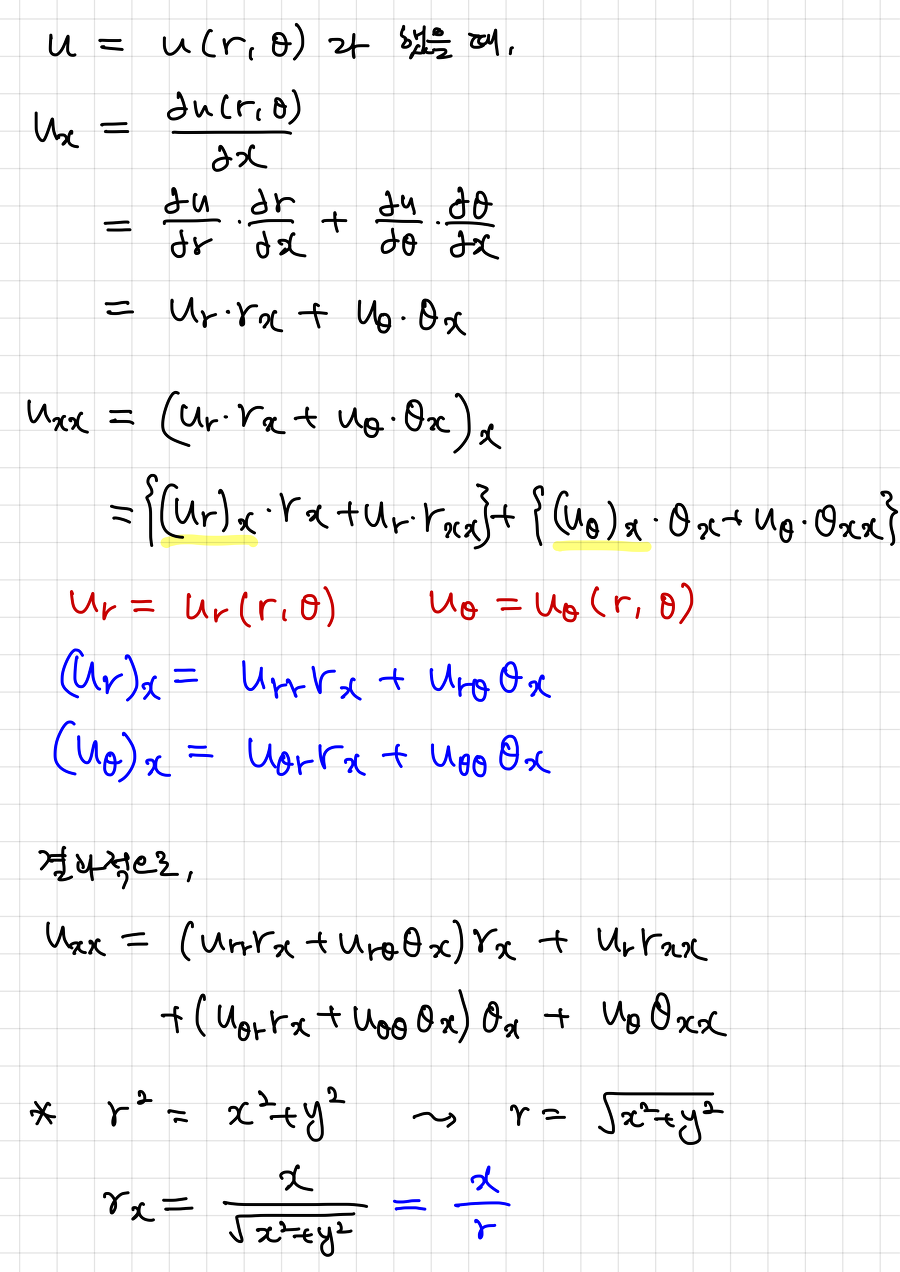 u = u(r, θ) 라 했을 때,
u_x = ∂u(r, θ)/∂x
= ∂u/∂r · ∂r/∂x + ∂u/∂θ · ∂θ/∂x
= u_r · r_x + u_θ · θ_x
u_xx = (u_r · r_x + u_θ · θ_x)_x
= {(u_r)_x · r_x + u_r · r_xx} + {(u_θ)_x · θ_x + u_θ · θ_xx}
u_r = u_r(r, θ) u_θ = u_θ(r, θ)
(u_r)_x = u_rr r_x + u_rθ θ_x
(u_θ)_x = u_θr r_x + u_θθ θ_x
결과적으로,
u_xx = (u_rr r_x + u_rθ θ_x) r_x + u_r r_xx
+ (u_θr r_x + u_θθ θ_x) θ_x + u_θ θ_xx
* r² = x² + y² ⇝ r = √(x² + y²)
r_x = x/√(x² + y²) = x/r